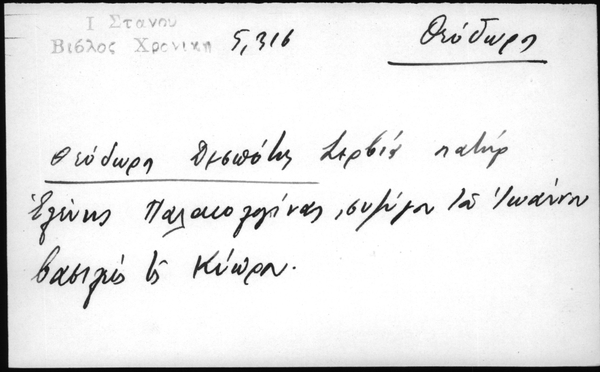 Ι Στανου
Βιβλος Χρονικη 5,316
Θεόδωρος
Θεόδωρος Δεσπότης Σερβίας πατήρ
Ἑλένης Παλαιολογίνας, συζύγου τοῦ Ἰωάννου
βασιλέως τῆς Κύπρου.